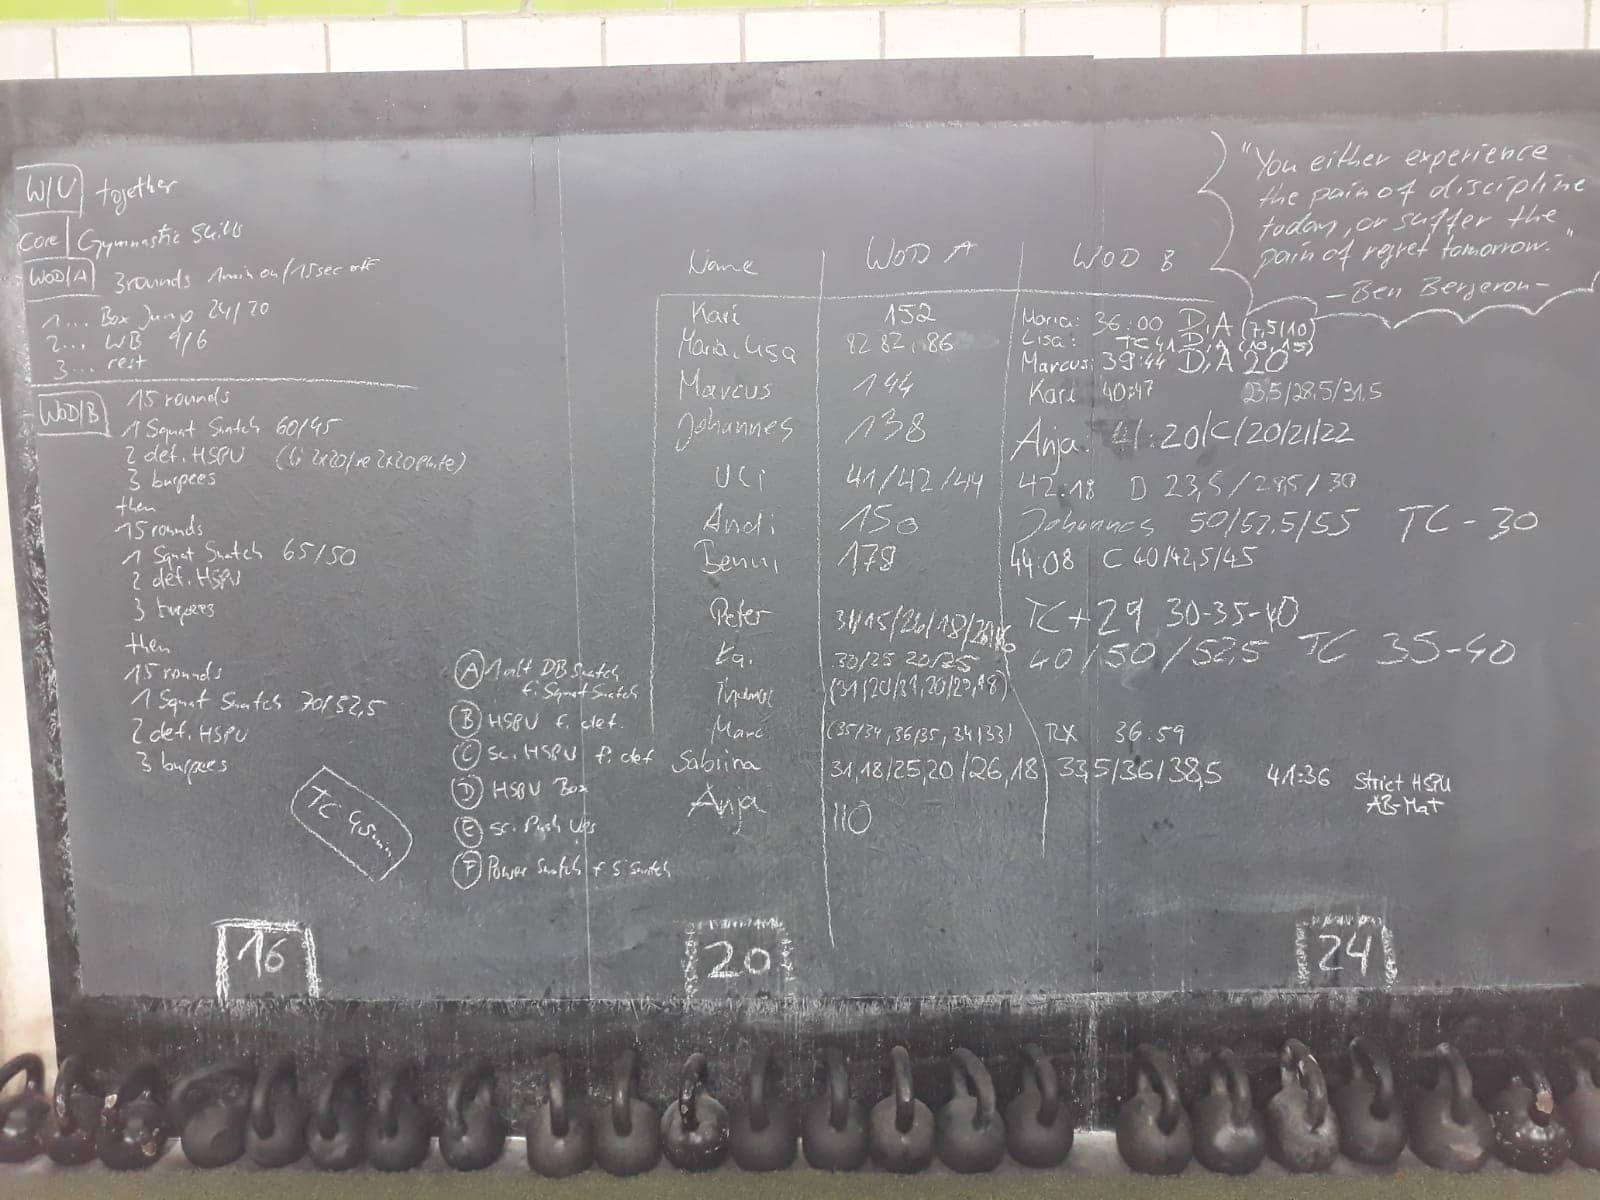 W/U together
Core Gymnastic Skills
WOD/A 3rounds 1min on/15sec off
1... Box Jump 24/20
2... WB 9/6
3... rest
WOD/B 15 rounds
1 Squat Snatch 60/45
2 def. HSPU (li 2x20/re 2x20 plate)
3 burpees
then
15 rounds
1 Squat Snatch 65/50
2 def. HSPU
3 burpees
then
15 rounds
1 Squat Snatch 70/52,5
2 def. HSPU
3 burpees
TC 45min
A 1 alt DB Snatch
f. Squat Snatch
B HSPU f. def.
C sc. HSPU f. def
D HSPU Box
E sc. Push Ups
F Power Snatch f S Snatch
Name WOD A WOD B
Karl 152
Maria, Lisa 82 82, 86
Marcus 144
Johannes 138
Uli 41/42/44
Andi 150
Benni 178
Peter
Kai 30/25 20/25
Marc (35/34, 36/35, 34/33)
Sabrina 31,18/25,20/26,18
Anja 110
Maria: 36:00 D,A (7,5/10)
Lisa: TC 41 D,A
Marcus: 39:44 D,A 20
Karl 40:47 23,5/28,5/31,5
Anja: 41:20/C/20/21/22
42:18 D 23,5/28,5/30
Johannes 50/52,5/55 TC-30
44:08 C 40/42,5/45
TC+29 30-35-40
40/50/52,5 TC 35-40
RX 36:59
33,5/36/38,5 41:36 Strict HSPU
AB-Mat
"You either experience
the pain of discipline
today, or suffer the
pain of regret tomorrow."
-Ben Bergeron-
16
20
24